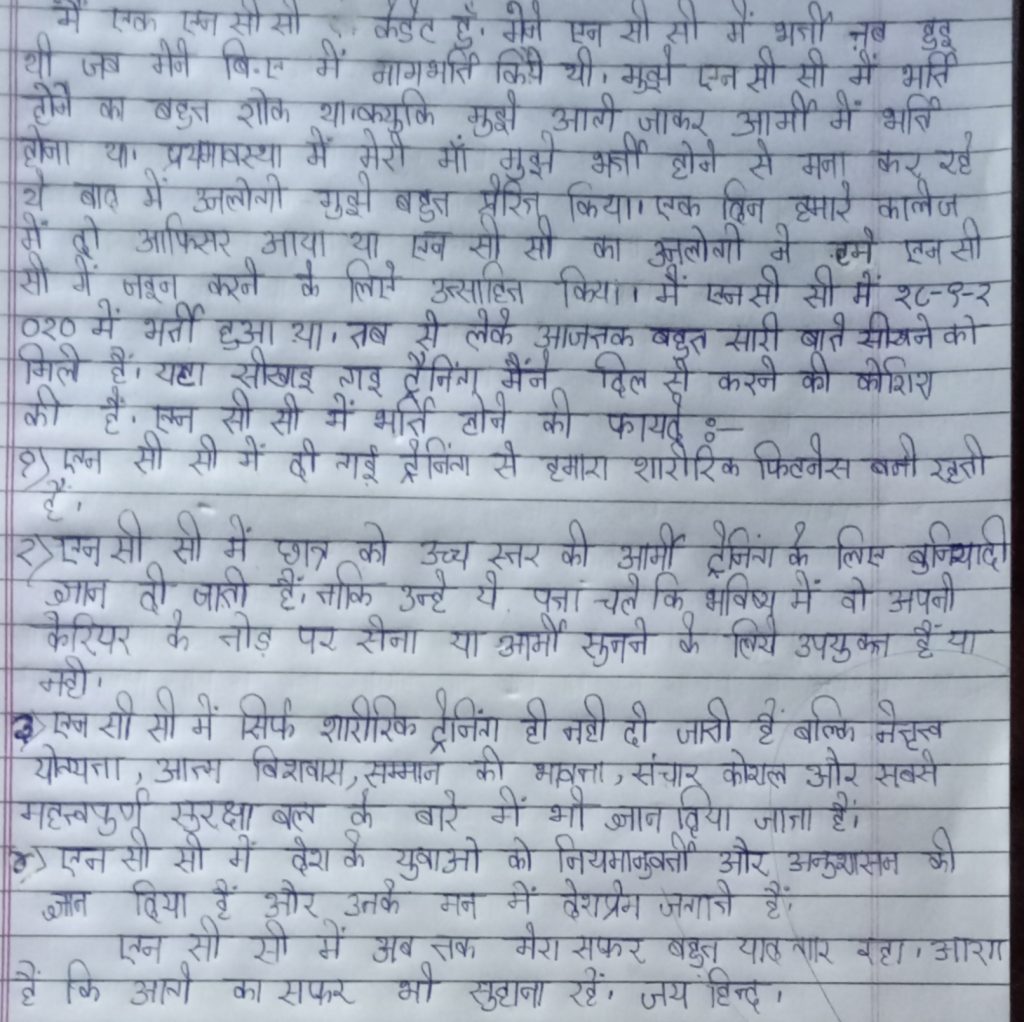 मैं एक एन सी सी कैडेट हुँ. मैने एन सी सी में भर्ती तब हुइ
थी जब मैने बि.ए में नामभर्ति किये थी. मुझे एन सी सी में भर्ति
होने का बहुत शोक था।क्युकि मुझे आगे जाकर आर्मी में भर्ति
होना था. प्रथमावस्था में मेरी माँ मुझे भर्ती होने से मना कर रहे
थे बाद में उनलोगो मुझे बहुत प्रेरित किया। एक दिन हमारे कालेज
में दो आफिसर आया था एन सी सी का उनलोगो ने हमे एन सी
सी में जइन करने के लिऐ उत्साहित किया। में एन सी सी में २८-९-२
०२० में भर्ती हुआ था. तब से लेके आजतक बहुत सारी बाते सीखने को
मिले हैं. यहा सीखाइ गइ ट्रैनिंग मैंने दिल से करने की कोशिश
की हैं. एन सी सी में भर्ति होने की फायदे ः—
१) एन सी सी में दी गई ट्रेनिंग से हमारा शारीरिक फिटनेस बनी रहती
हैं.
२) एन सी सी में छात्र को उच्च स्तर की आर्मी ट्रेनिंग के लिए बुनियादी
ज्ञान दी जाती हैं. ताकि उन्हे ये पता चले कि भविष्य में वो अपनी
कैरियर के तोड़ पर सेना या आर्मी सुनने के लिये उपयुक्त हैं या
नही.
३) एन सी सी में सिर्फ शारीरिक ट्रेनिंग ही नही दी जाती हैं बल्कि नेतृत्त्व
योग्यता, आत्म बिशवास, सम्मान की भावना, संचार कोशल और सबसे
महत्त्वपुर्ण सुरक्षा बल के बारे में भी ज्ञान दिया जाता हैं.
४) एन सी सी में देश के युवाओ को नियमानुवर्ती और अनुशासन की
ज्ञान दिया हैं और उनके मन में देशप्रेम जगाते हैं.
एन सी सी में अब तक मेरा सफर बहुत याद गार रहा. आशा
हैं कि आगे का सफर भी सुहाना रहें. जय हिन्द.